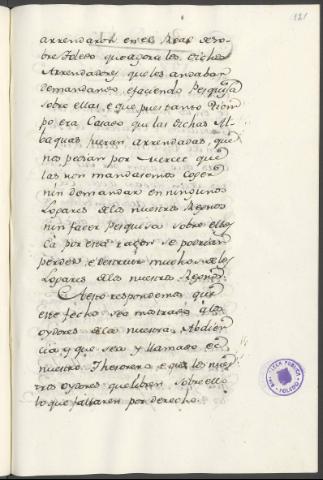 121
arrendaron en el Regno de to-
bre Toledo que agora los dichos
Arrendadores que los andaban
demandando, e faciendo Pesquisa
sobre ellas, e que pues tanto tiem
po era Casado que las dichas Al-
baquias fueran arrendadas, que
nos pedian por Merced que
las non mandaremos coger
nin demandar en ningunos
Logares de los nuestros Regnos
nin facer Pesquisa sobre ellos
Ca por esta razon se podrian
perder, e destruir muchos de los
Logares de los nuestros Regnos.
A esto respondemos que
este fecho sea mostrado a los
oydores de la nuestra Abdien-
cia y que sea y llamado el
nuestro Thesorero, e que los nues-
tros oydores que libren sobre ello
lo que fallaren por derecho.
TOLEDO